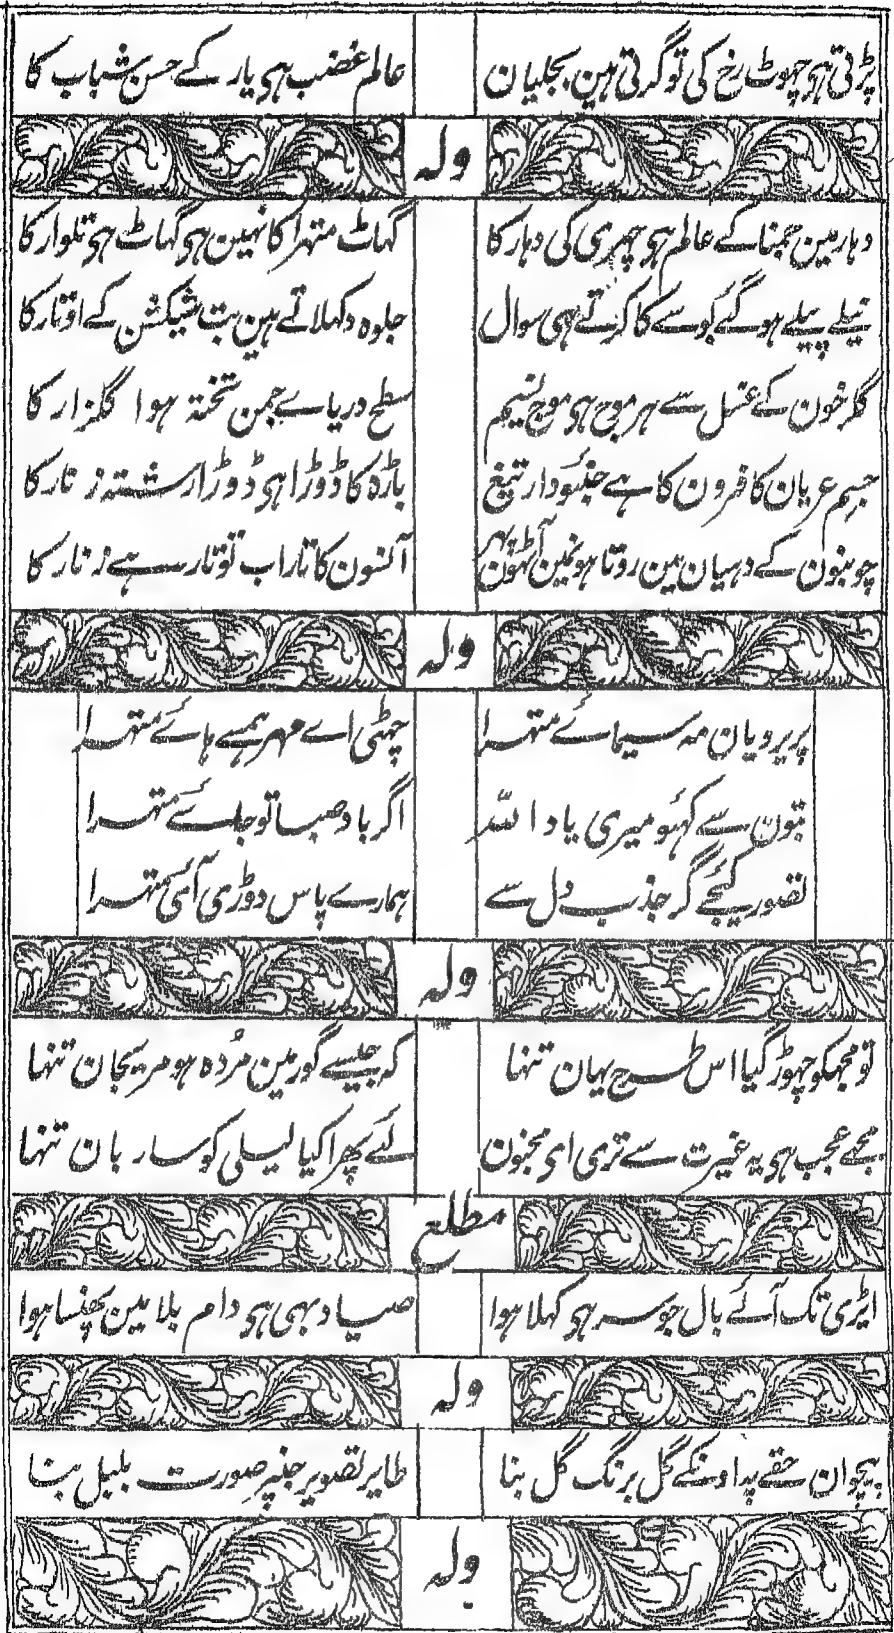 پڑتی ہی چھوٹ رخ کی تو گرتی ہین بجلیان عالم غضب ہی یار کے حسن شباب کا
ولہ
دہار مین جمنا کے عالم ہی چھری کی دہار کا گہاٹ متہرا کا نہین ہی گہاٹ ہی تلوار کا
نیلے پیلے ہو گئے بوسے کا کرتے ہی سوال جلوہ دکہلاتے ہین بت شیکشن کے اوتار کا
گلرخون کے غسل سے ہر موج ہی موج نسیم سطح دریا ہے چمن تختہ ہوا گلزار کا
جسم عریان کافرون کا ہے جنئو دار تیغ باڑہ کا ڈوڑا ہی ڈوڑا رشتہ زنار کا
جو بتون کے دہیان مین روتا ہونمین آٹھون پہر آنسون کا تار اب تو تار ہے زنار کا
ولہ
پریرویان مہ سیمائے متہرا چہٹی اے مہر ہمسے ہائے متہرا
بتون سے کہئو میری یاد اللہ اگر باد صبا تو جائے متہرا
تصور کیجے گر جذب دل سے ہمارے پاس دوڑی آئے متہرا
ولہ
تو مجہکو چہوڑ گیا اس طرح یہان تنہا کہ جیسے گور مین مردہ ہو مریجان تنہا
مجھے عجب ہی یہ غیرت سے تری ای مجنون لئے پھرا کیا لیلی کو ساربان تنہا
مطلع
ایڑی تک آئے بال جو سر ہی کہلا ہوا صیاد بہی ہی دام بلا مین پھنسا ہوا
ولہ
پیچوان حقے پہ اونکے گل برنگ گل بنا طایر تصویر جنپر صورت بلبل بنا
ولہ